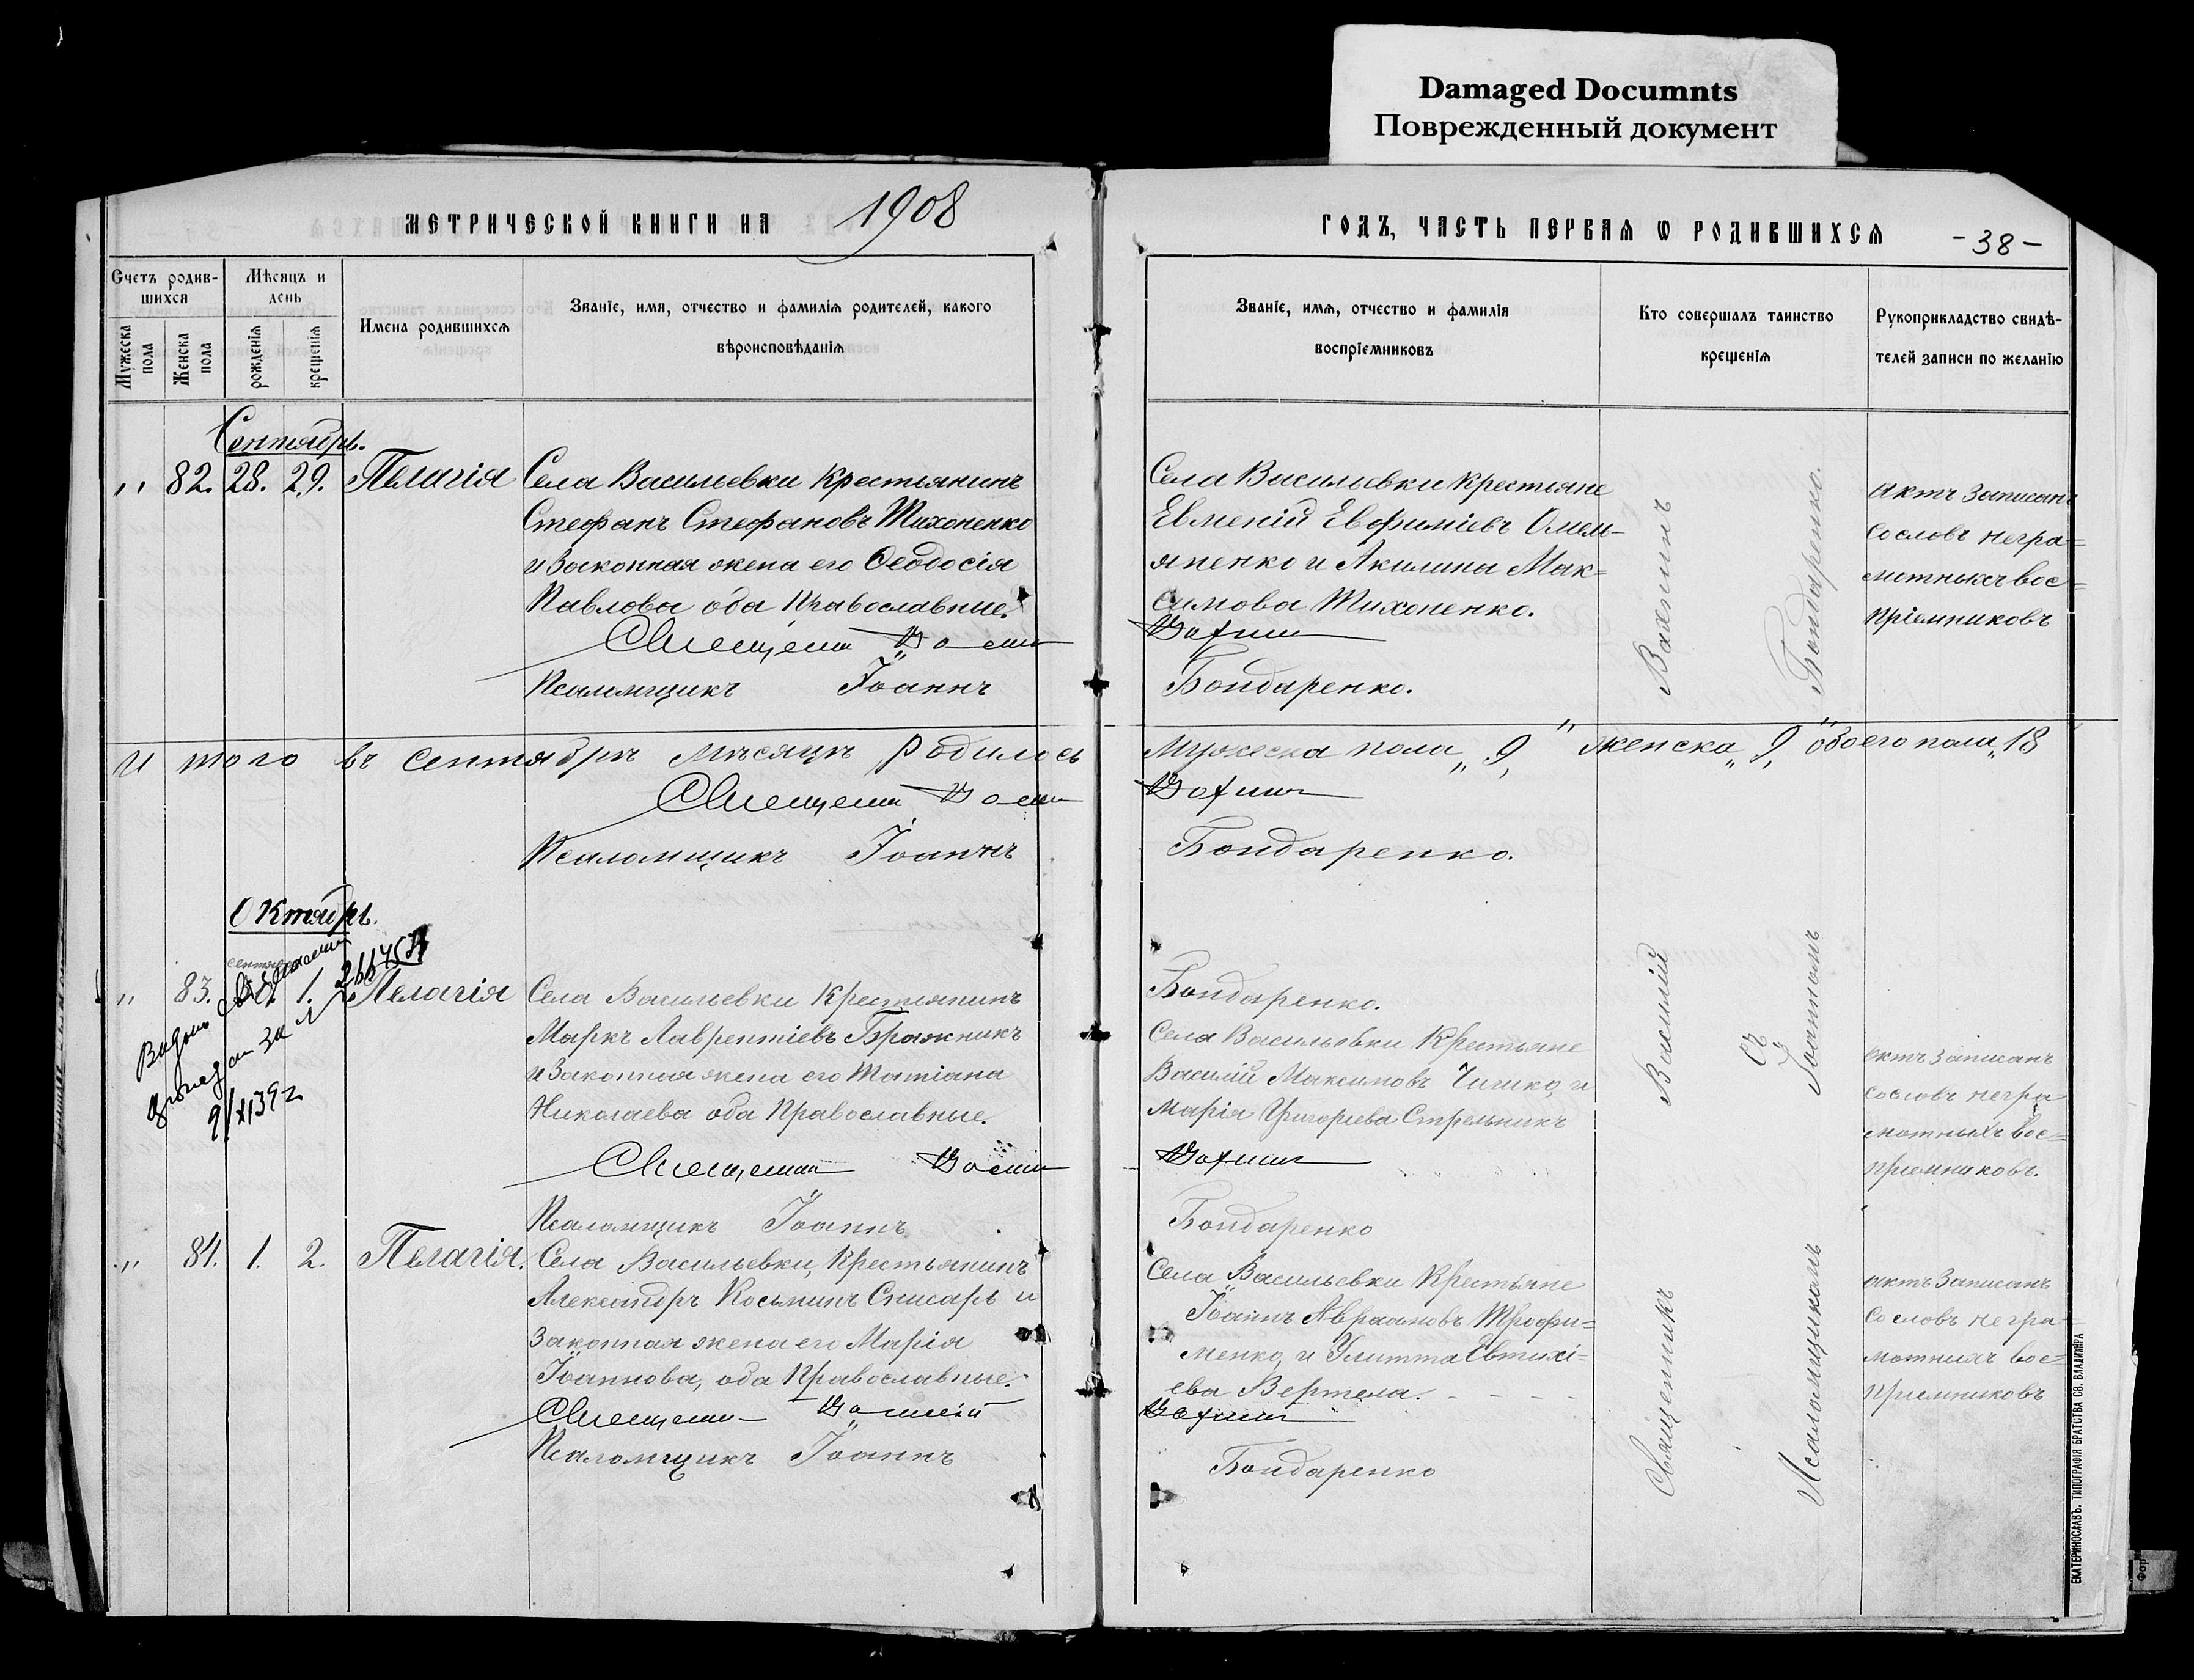 Damaged Documnts
Поврежденный документ
МЕТРИЧЕСКОЙ КНИГИ НА 1908
ГОДЪ, ЧАСТЬ ПЕРВАЯ Ѡ РОДИВШИХСЯ
-38-
Счетъ родив-
шихся
Мужеска
пола
Женска
пола
Мѣсяцъ и
день
рожденія
крещенія
Имена родившихся
Званіе, имя, отчество и фамилія родителей, какого
вѣроисповѣданія
Званіе, имя, отчество и фамилія
воспріемниковъ
Кто совершалъ таинство
крещенія
Рукоприкладство свидѣ-
телей записи по желанію
Сентябрь.
„ 82. 28. 29. Пелагія
Села Васильевки крестьянинъ
Стефанъ Стефановъ Тихоненко
и законная жена его Ѳеодосія
Павлова оба Православные.
Псаломщикъ Іоаннъ
Села Васильевки крестьяне
Евменій Евфиміевъ Омель-
яненко и Акилина Мак=
симова Тихоненко.
Бондаренко.
Бондаренко.
актъ записанъ
со словъ негра=
мотныхъ вос=
пріемниковъ
Итого въ сентябрѣ мѣсяцѣ родилось
Мужеска пола „9„ женска „9„ обоего пола „18
Псаломщикъ Іоаннъ
Бондаренко.
Октябрь.
„ 83. 1. Пелагія
Села Васильевки Крестьянинъ
Маркъ Лаврентіевъ Бражникъ
и Законная жена его Татіана
Николаева оба Православные.
Псаломщикъ Іоаннъ
Бондаренко.
Села Васильевки Крестьяне
Василій Максимовъ Чишко, и
Марія Григорьева Стрельникъ
Бондаренко
Василій
съ
Іоанномъ
актъ записанъ
со словъ негра=
мотныхъ вос=
пріемниковъ.
9/XI 39 г
„ 84. 1. 2. Пелагія.
Села Васильевки, Крестьянинъ
Александръ Косьминъ Снисарь и
Законная жена его Марія
Іоаннова, оба Православные.
Псаломщикъ Іоаннъ
Села Васильевки Крестьяне
Іоаннъ Аврамовъ Трофи=
менко, и Улитта Евтихі=
ева Вертела.
Бондаренко
Священникъ
Псаломщикомъ
актъ записанъ
со словъ негра=
мотныхъ вос=
пріемниковъ
ЕКАТЕРИНОСЛАВЪ. ТИПОГРАФІЯ БРАТСТВА СВ. ВЛАДИМІРА